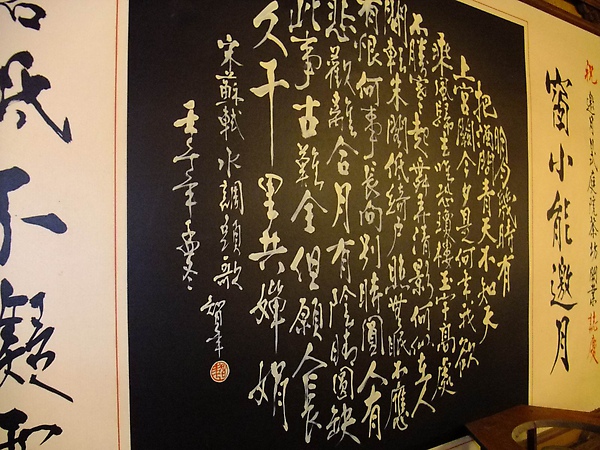 祝
庭院茶坊開業誌慶
窗小能邀月
明月幾時有
把酒問青天不知天
上宮闕今夕是何年我欲
乘風歸去唯恐瓊樓玉宇高處
不勝寒起舞弄清影何似在人
間轉朱閣低綺戶照無眠不應
有恨何事長向別時圓人有
悲歡離合月有陰晴圓缺
此事古難全但願人長
久千里共嬋娟
宋蘇軾水調頭歌
壬午年孟冬
低不凝